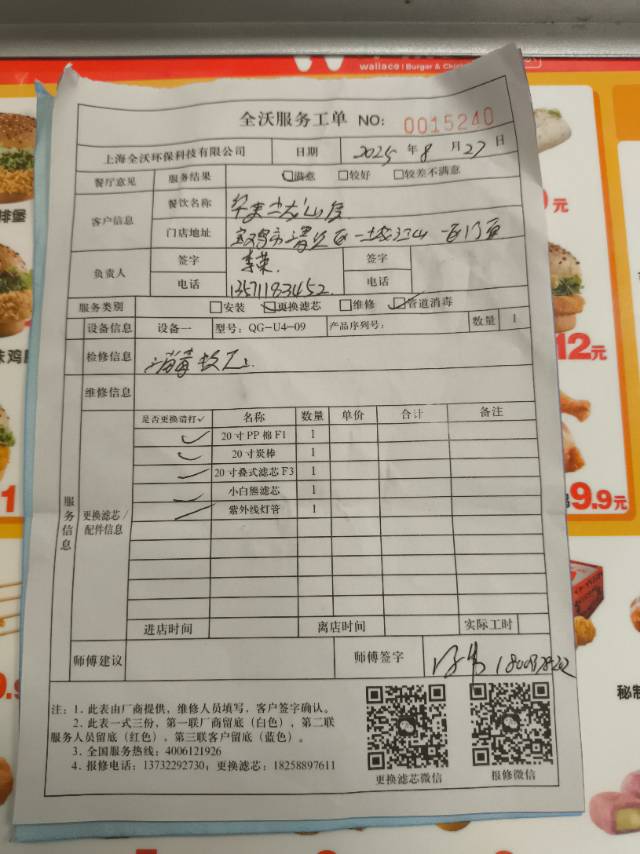 wallace | Burger & Chic
全沃服务工单 NO: 0015240
上海全沃环保科技有限公司 日期 2025年8月27日
餐厅意见 服务结果 满意 较好 较差不满意
客户信息 餐饮名称
门店地址
负责人 签字 签字
电话 13571183452 电话
服务类别 安装 更换滤芯 维修 管道消毒
设备信息 设备一 型号：QG-U4-09 产品序列号： 数量 1
检修信息 消毒
维修信息
服务信息
更换滤芯/配件信息
是否更换请打✓ 名称 数量 单价 合计 备注
✓ 20寸PP棉F1 1
✓ 20寸炭棒 1
✓ 20寸叠式滤芯F3 1
✓ 小白熊滤芯 1
✓ 紫外线灯管 1
进店时间 离店时间 实际工时
师傅建议 师傅签字
注：1. 此表由厂商提供，维修人员填写，客户签字确认。
2. 此表一式三份，第一联厂商留底（白色），第二联
服务人员留底（红色），第三联客户留底（蓝色）。
3. 全国服务热线：4006121926
4. 报修电话：13732292730；更换滤芯：18258897611
更换滤芯微信 报修微信
排堡
元
12元
9.9元
1
9.
秘制